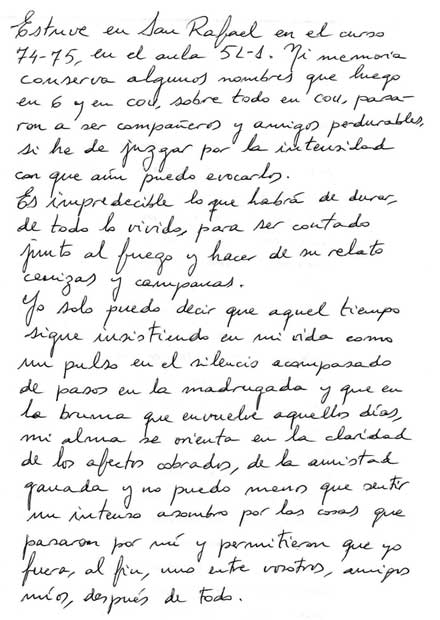 Estuve en San Rafael en el curso
74-75, en el aula 5L-1. Mi memoria
conserva algunos nombres que luego
en 6 y en cou, sobre todo en cou, pasa-
ron a ser compañeros y amigos perdurables,
si he de juzgar por la intensidad
con que aún puedo evocarlos.
Es impredecible lo que habrá de durar,
de todo lo vivido, para ser contado
junto al fuego y hacer de su relato
cenizas y campanas.
Yo solo puedo decir que aquel tiempo
sigue insistiendo en mi vida como
un pulso en el silencio acompasado
de pasos en la madrugada y que en
la bruma que envuelve aquellos días,
mi alma se orienta en la claridad
de los afectos cobrados, de la amistad
ganada y no puedo menos que sentir
un intenso asombro por las cosas que
pasaron por mí y permitieron que yo
fuera, al fin, uno entre vosotros, amigos
míos, después de todo.